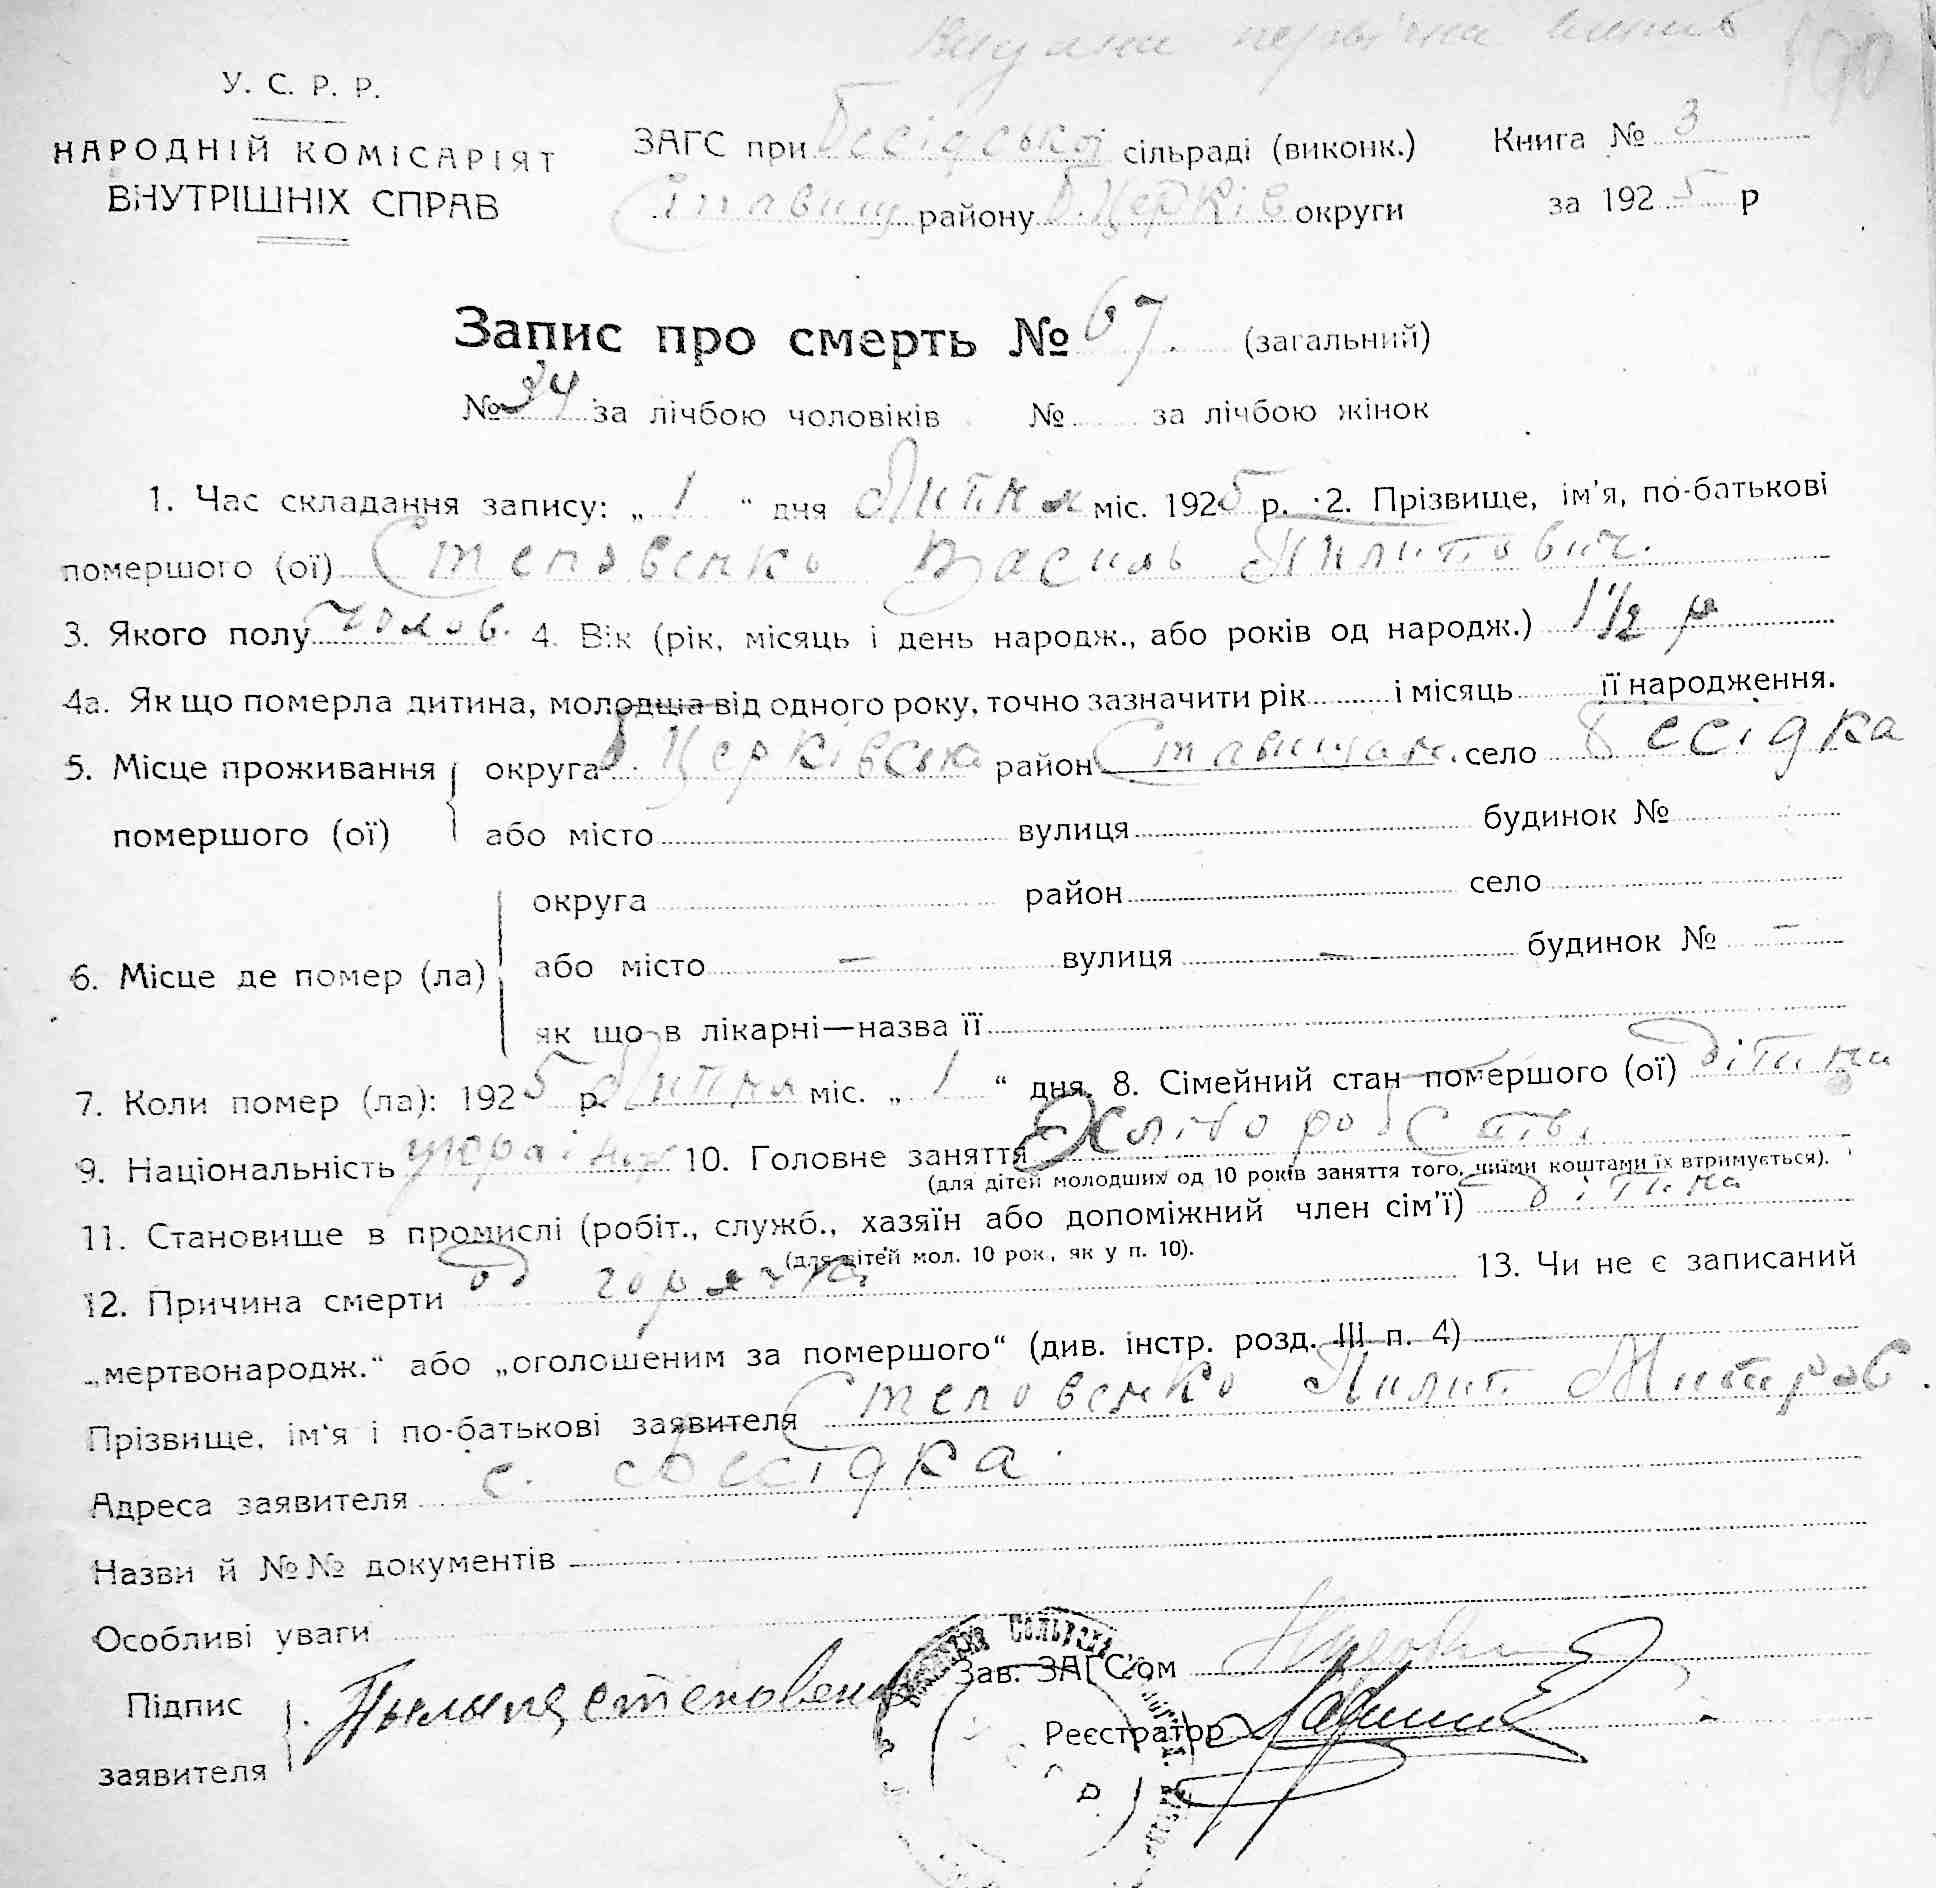 У. С. Р. Р.
НАРОДНІЙ КОМІСАРІЯТ
ВНУТРІШНІХ СПРАВ
ЗАГС при Бесідській сільраді (виконк.) Книга № 3
Ставищ району Б. Церків округи за 1925 р
Запис про смерть № 67. (загальний)
№ 34 за лічбою чоловіків № за лічбою жінок
1. Час складання запису: „ 1 “ дня Липня міс. 1925 р. 2. Прізвище, ім'я, по-батькові
помершого (ої) Степовенко Василь Пилипович.
3. Якого полу чолов. 4. Вік (рік, місяць і день народж., або років од народж.) 1 1/2 р
4а. Як що померла дитина, молодша від одного року, точно зазначити рік і місяць її народження.
5. Місце проживання помершого (ої)
округа Б Церківська район Ставищан. село Бесідка
або місто вулиця будинок №
6. Місце де помер (ла)
округа район село
або місто — вулиця — будинок № —
як що в лікарні—назва її
7. Коли помер (ла): 1925 р. Липня міс. „ 1 “ дня. 8. Сімейний стан помершого (ої) дітина
9. Національність україн 10. Головне заняття Хліборобств.
(для дітей молодших од 10 років заняття того, чиїми коштами їх втримується).
11. Становище в промислі (робіт., служб., хазяїн або допоміжний член сім'ї) дітина
(для дітей мол. 10 рок., як у п. 10).
12. Причина смерти од горячки 13. Чи не є записаний
„мертвонародж.“ або „оголошеним за помершого“ (див. інстр. розд. III п. 4)
Прізвище, ім'я і по-батькові заявителя Степовенко Пилип Митроф.
Адреса заявителя с. Бесідка.
Назви й №№ документів
Особливі уваги
Підпис заявителя
Зав. ЗАГС'ом
Реєстратор